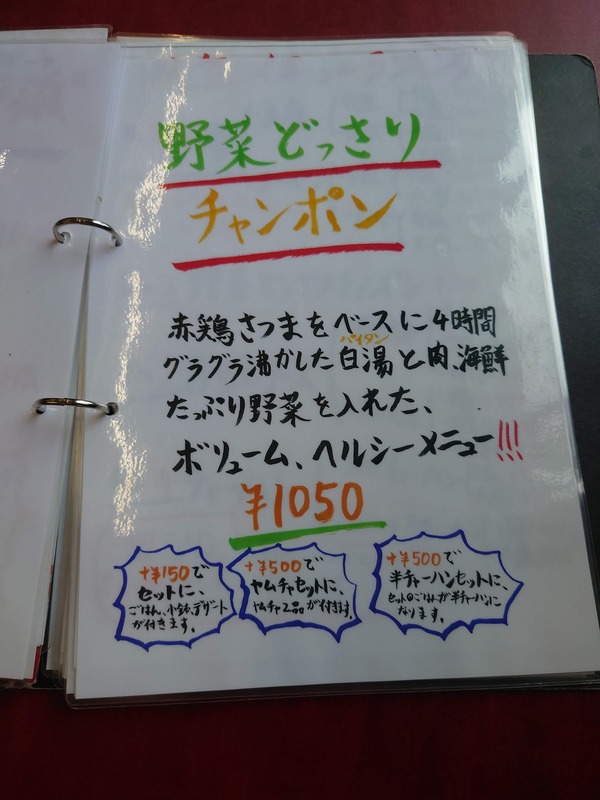 野菜どっさり
チャンポン
赤鶏さつまをベースに4時間
パイタン
グラグラ沸かした白湯と肉、海鮮
たっぷり野菜を入れた、
ボリューム、ヘルシーメニュー!!!
¥1050
+¥150で
セットに、
ごはん、小鉢、デザート
が付きます。
+¥500で
ヤムチャセットに、
ヤムチャ2品が付きます。
+¥500で
半チャーハンセットに、
セットのごはんが半チャーハンに
なります。